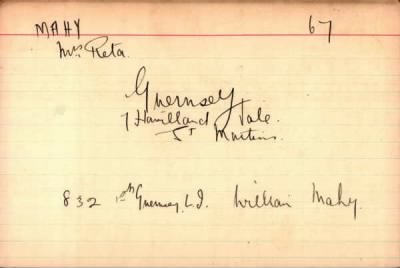 MAHY 67
Mrs Reta.
Guernsey
7 Havilland Vale.
St Martins.
832 1st Guernsey L.I. William Mahy.